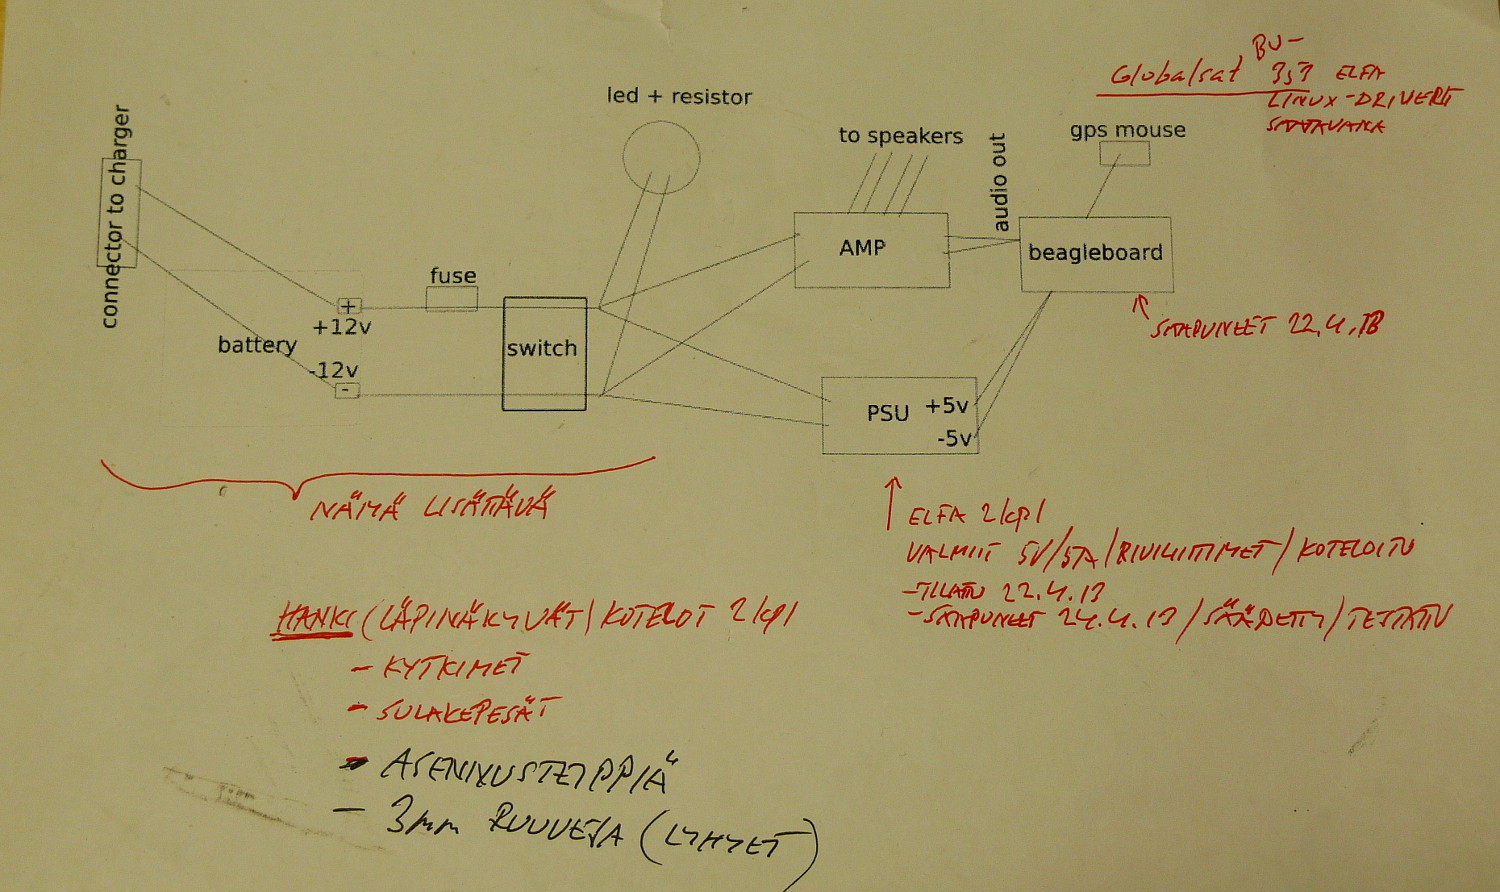 BU-
Globalsat 353 ELFA
LINUX-DRIVERIT
SAATAVANA
led + resistor
connector to charger
to speakers
audio out
gps mouse
AMP
beagleboard
fuse
+
+12v
switch
battery
-12v
-
SAAPUNEET 22.4.13
PSU
+5v
-5v
NÄMÄ LISÄTTÄVÄ
ELFA 2/kpl
VALMIIT 5V/5A/RIVILIITTIMET/KOTELOITU
-TILATTU 22.4.13
-SAAPUNEET 24.4.13/SÄÄDETTY/TESTATTU
HANKI (LÄPINÄKYVÄT) KOTELOT 2/kpl
- KYTKIMET
- SULAKEPESÄT
- ASENNUSTEIPPIÄ
- 3mm RUUVEJA (LYHYET)